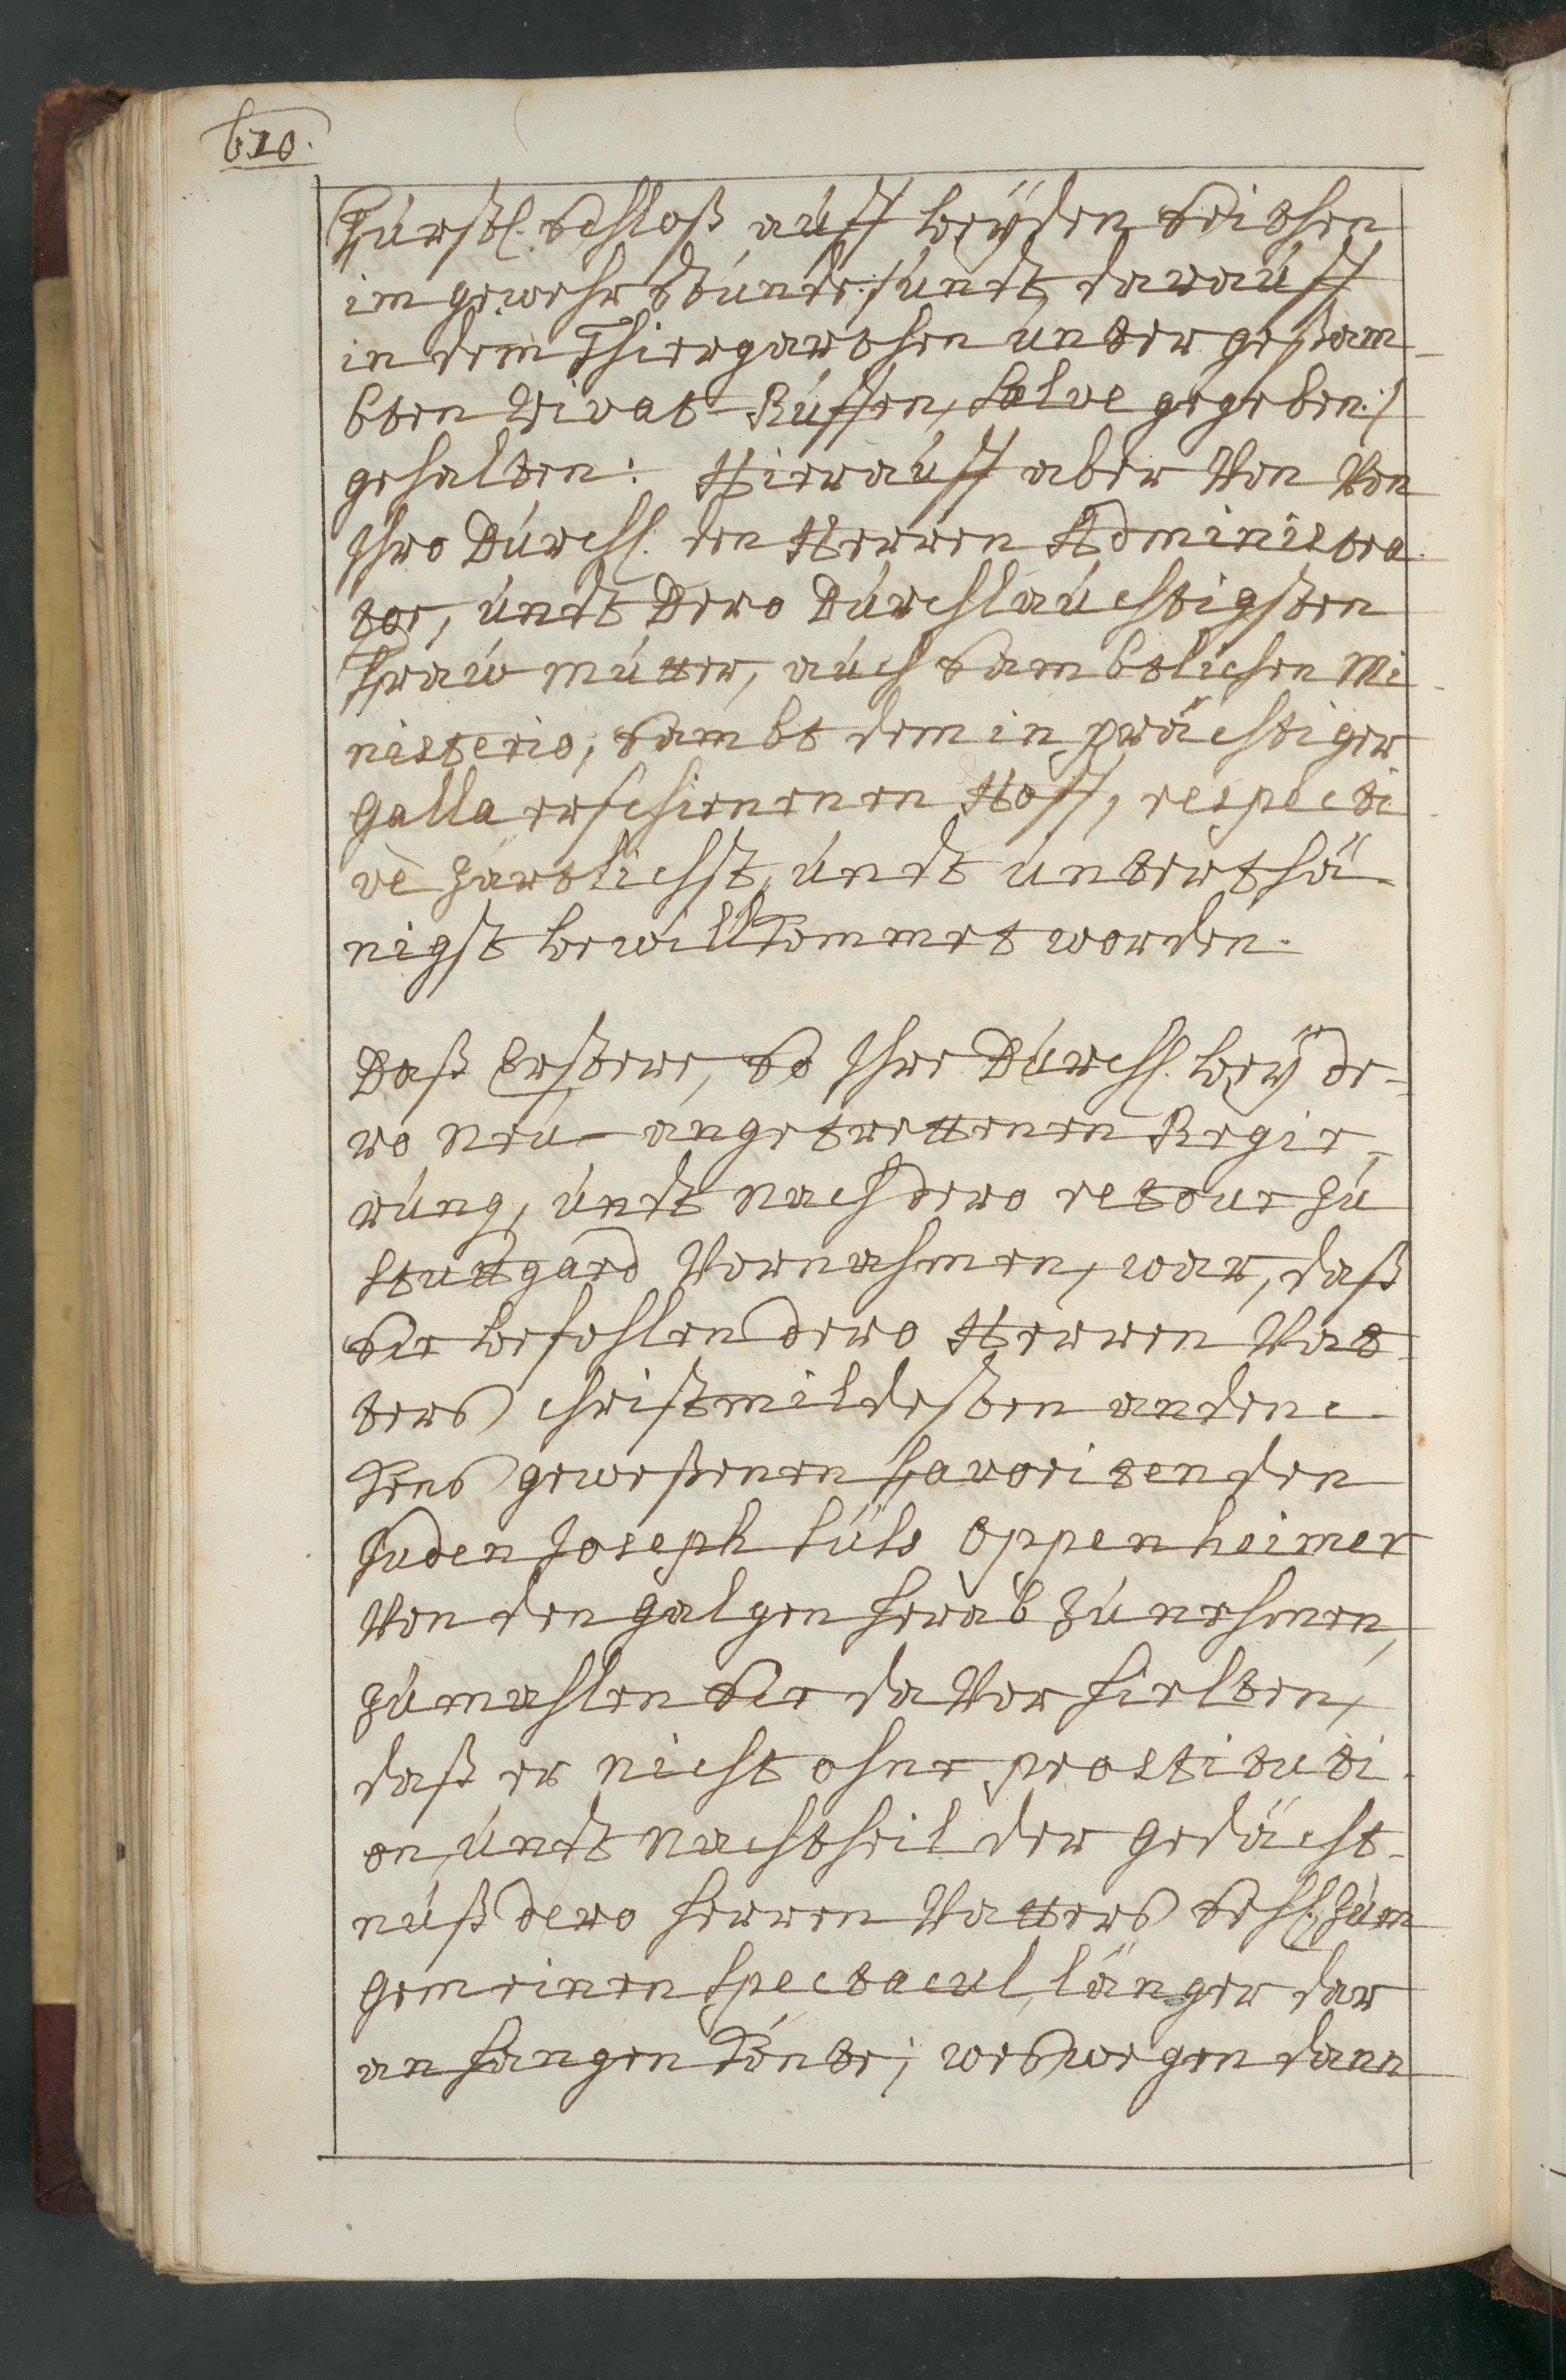 610.
Fürstl. Schloß auff beÿden Seithen
im gewehr stunde:/ undt darauff
in dem Thiergarthen unter gesam-
bten Vivat-Ruffen, Salve gegeben:/
gehalten: Hierauff aber Von Von
Ihro Durchl. den Herren Administra-
tor, undt Dero Durchlauchtigsten
Fraw Mutter, auch Sambtlichen Mi-
nisterio, Sambt dem in prächtiger
Galla erschienenen Hoff, respecti-
vè zärtlichst, undt unterthä-
nigst bewillkommet worden.
Daß Erstere, So Ihre Durchl. beÿ de-
ro Neu-angetrettenen Regie-
rung, undt Nach dero retour zu
Stuttgard Vornahmen, war, daß
Sie befehlen dero Herren Vat-
ters christmildesten andenc-
kens geweßenen Favoriten den
Juden Joseph Süß Oppenheimer
Von den galgen herab zu nehmen,
zumahlen Sie da Vor hielten,
daß er Nicht ohne prostituti-
on, undt Nachtheil der gedächt-
nuß dero Herren Vatters Seel: zum
gemeinen Spectacul, länger dar
an hangen könte; weswegen dann